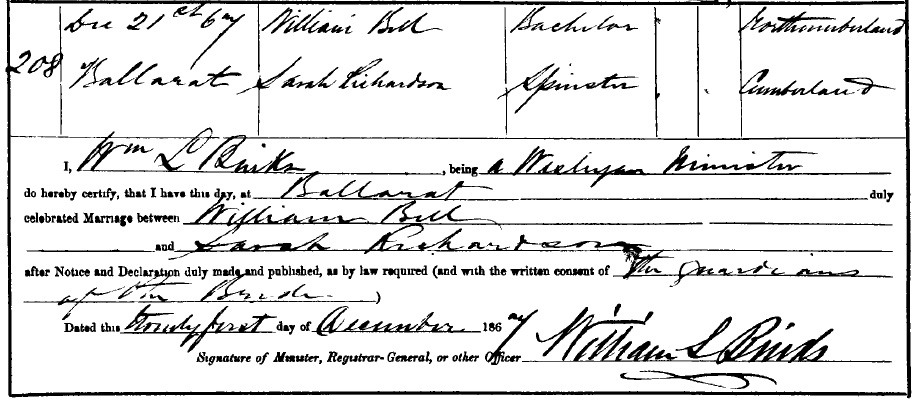 Dec 21st 67 William Bell Bachelor Northumberland
208 Ballarat Sarah Richardson Spinster Cumberland
I, Wm L Binks, being a Wesleyan Minister
do hereby certify, that I have this day, at Ballarat duly
celebrated Marriage between William Bell
and Sarah Richardson
after Notice and Declaration duly made and published, as by law required (and with the written consent of the guardians
of the Bride)
Dated this twenty first day of December 1867
Signature of Minister, Registrar-General, or other Officer William L Binks